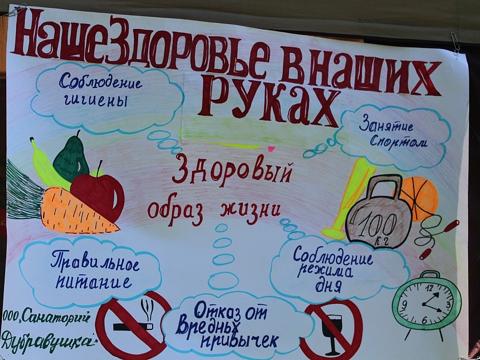 Наше Здоровье в наших
руках
Соблюдение
гигиены
Занятие
Спортом
Здоровый
образ жизни
100
кг
Правильное
питание
Соблюдение
режима
дня
12
ООО, Санаторий
Дубравушка"
Отказ от
Вредных
привычек